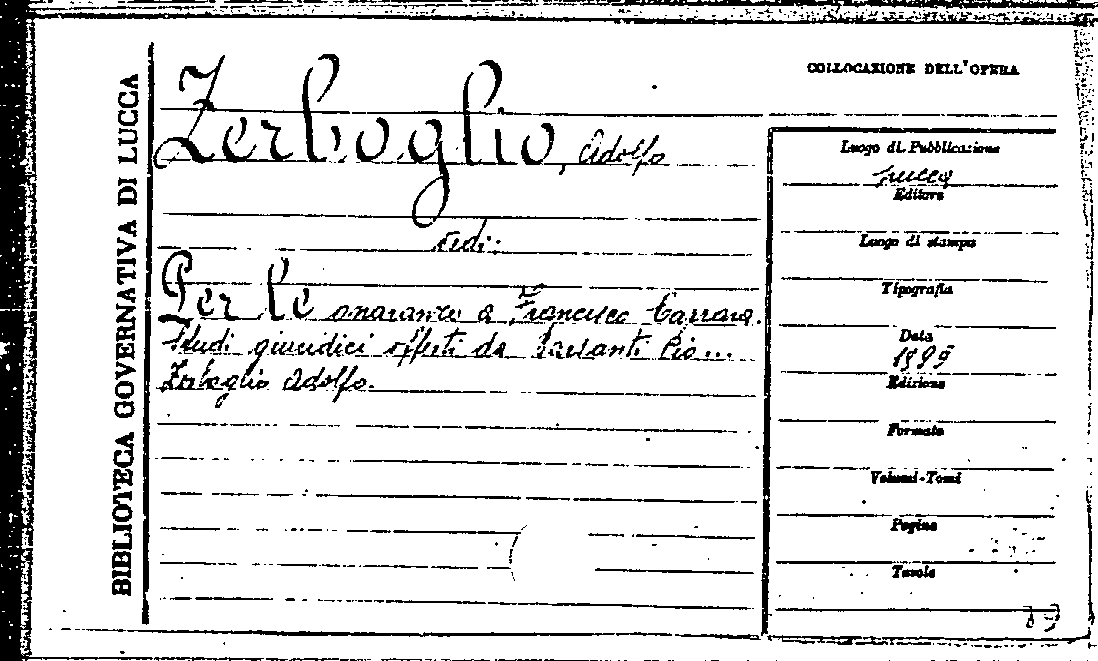 BIBLIOTECA GOVERNATIVA DI LUCCA
Zerboglio, Adolfo
vedi:
Per le onoranze a Francesco Carrara.
Studi giuridici offerti da Barsanti Pio...
Zerboglio Adolfo.
COLLOCAZIONE DELL'OPERA
Luogo di Pubblicazione
Lucca
Editore
Luogo di stampa
Tipografia
Data
1899
Edizione
Formato
Volumi-Tomi
Pagine
Tavole